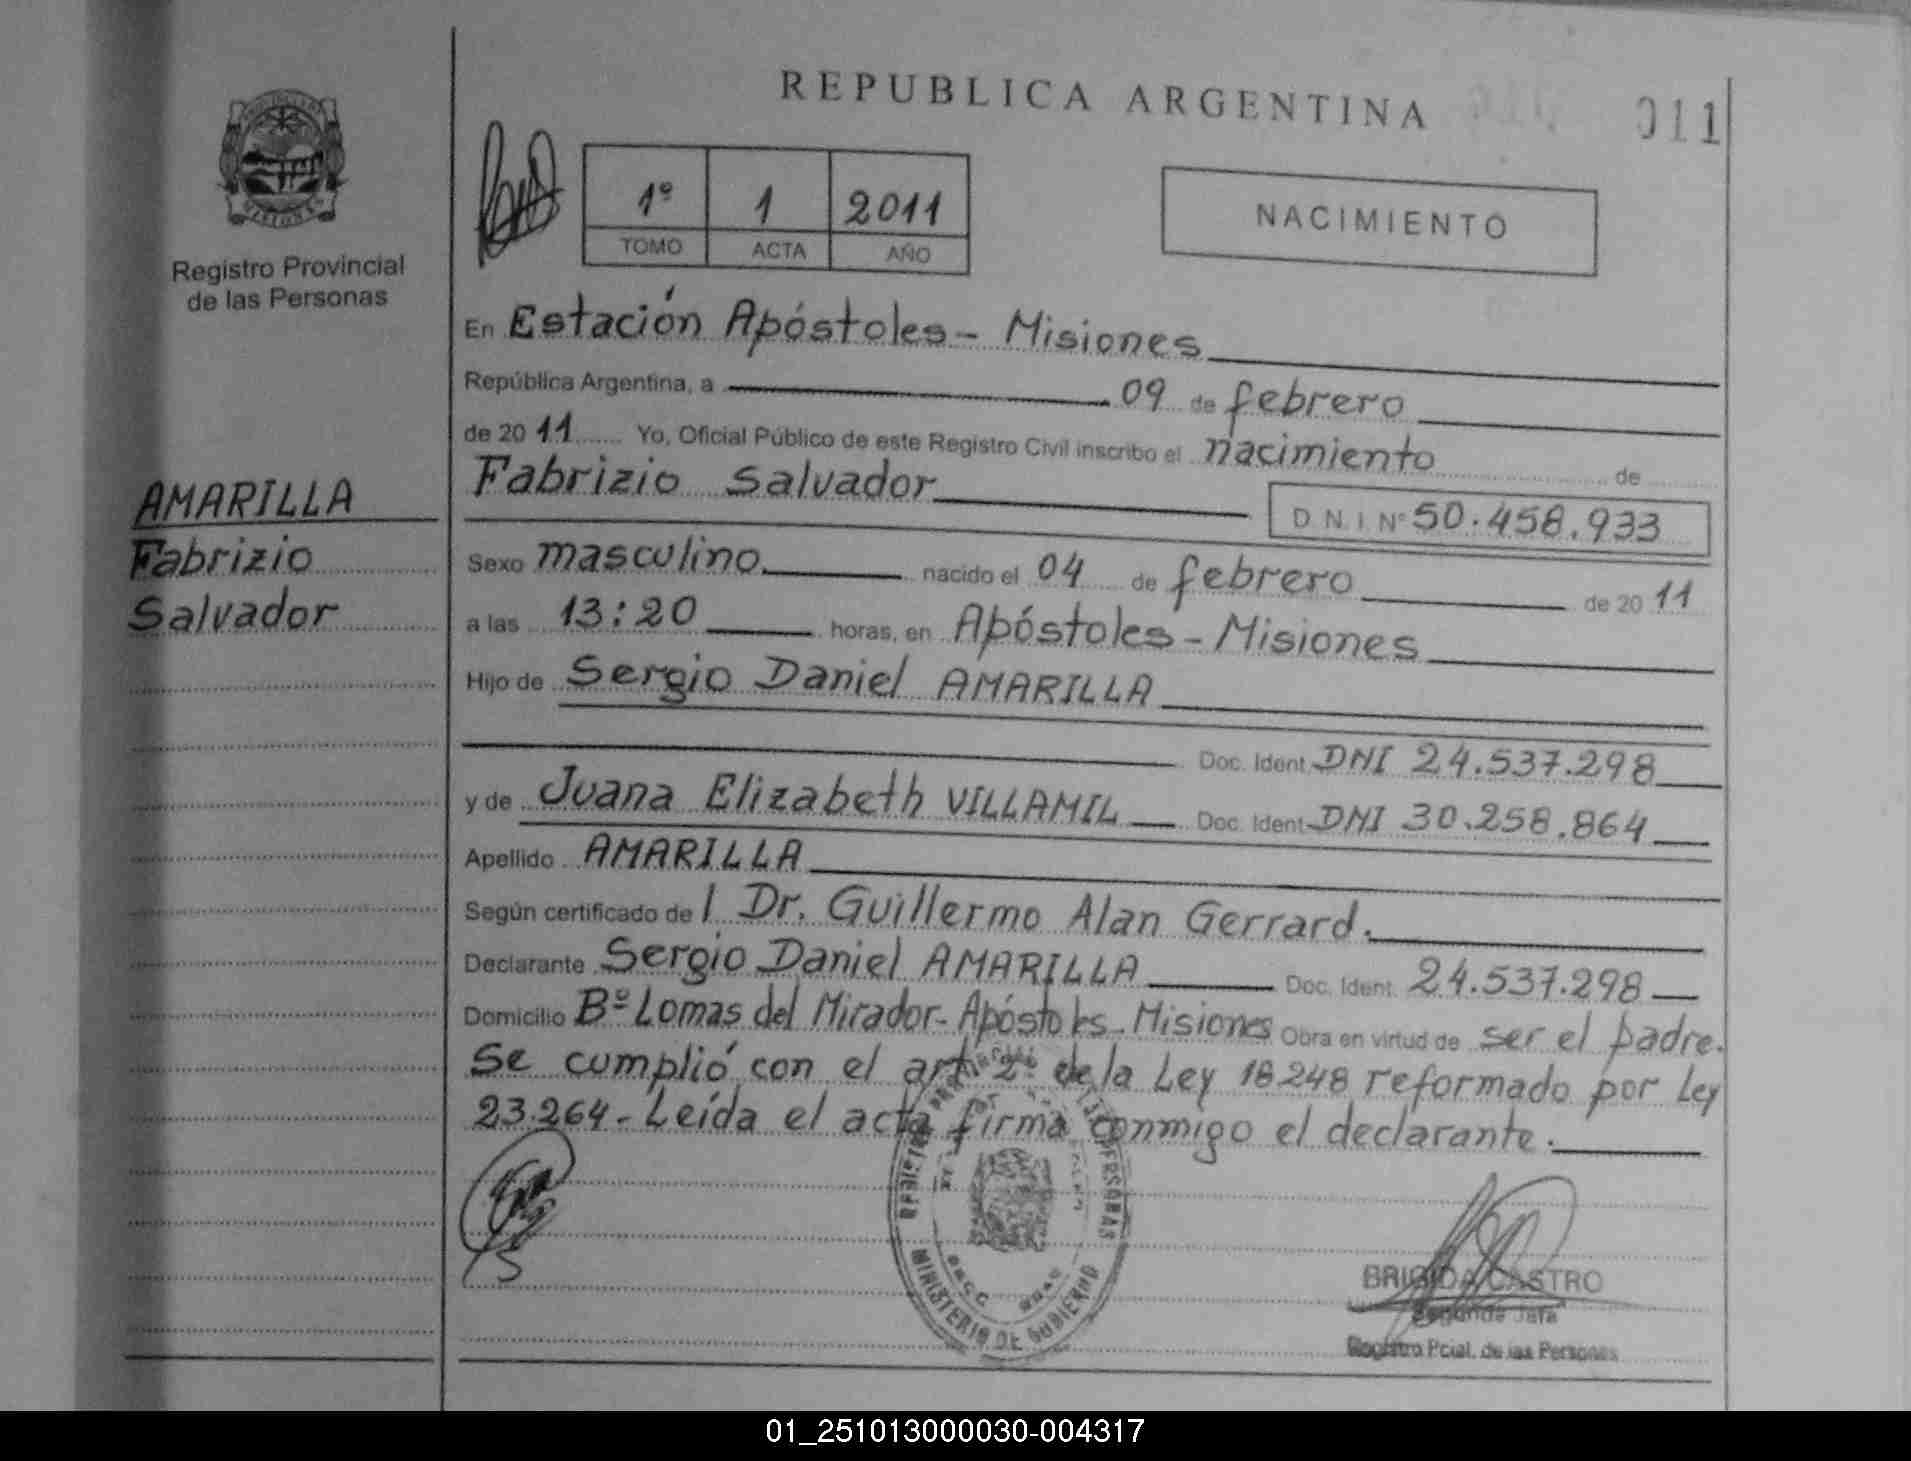 REPUBLICA ARGENTINA
011
MISIONES
Registro Provincial
de las Personas
1º 1 2011
TOMO ACTA AÑO
NACIMIENTO
En Estación Apóstoles - Misiones
República Argentina, a 09 de febrero
de 2011 Yo, Oficial Público de este Registro Civil inscribo el nacimiento de
Fabrizio Salvador
D.N.I. Nº 50.458.933
AMARILLA
Fabrizio
Salvador
Sexo masculino nacido el 04 de febrero de 2011
a las 13:20 horas, en Apóstoles - Misiones
Hijo de Sergio Daniel AMARILLA
Doc. Ident. DNI 24.537.298
y de Juana Elizabeth VILLAMIL Doc. Ident. DNI 30.258.864
Apellido AMARILLA
Según certificado de l Dr. Guillermo Alan Gerrard.
Declarante Sergio Daniel AMARILLA Doc. Ident. 24.537.298
Domicilio Bº Lomas del Mirador - Apóstoles - Misiones Obra en virtud de ser el padre.
Se cumplió con el art. 2º de la Ley 18248 reformado por Ley
23.264 - Leída el acta firma conmigo el declarante.
MINISTERIO DE GOBIERNO
BRIGIDA CASTRO
Segunda Jefa
Registro Pcial. de las Personas
01_251013000030-004317